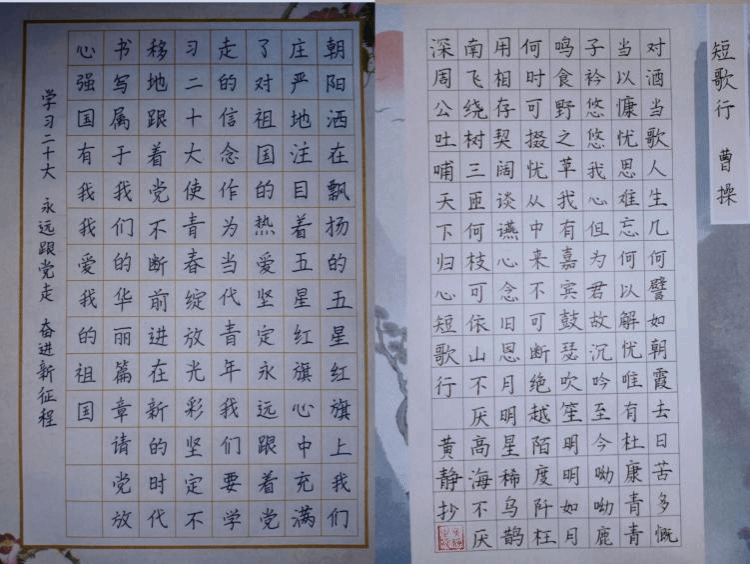 朝阳洒在飘扬的五星红旗上我们
庄严地注目着五星红旗心中充满
了对祖国的热爱坚定永远跟着党
走的信念作为当代青年我们要学
习二十大使青春绽放光彩坚定不
移地跟着党不断前进在新的时代
书写属于我们的华丽篇章请党放
心强国有我我爱我的祖国
学习二十大 永远跟党走 奋进新征程
短歌行 曹操
对酒当歌人生几何譬如朝霞去日苦多慨
当以慷忧思难忘何以解忧唯有杜康青青
子衿悠悠我心但为君故沉吟至今呦呦鹿
鸣食野之草我有嘉宾鼓瑟吹笙明明如月
何时可掇忧从中来不可断绝越陌度阡枉
用相存契阔谈讌心念旧恩月明星稀乌鹊
南飞绕树三匝何枝可依山不厌高海不厌
深周公吐哺天下归心短歌行 黄静抄